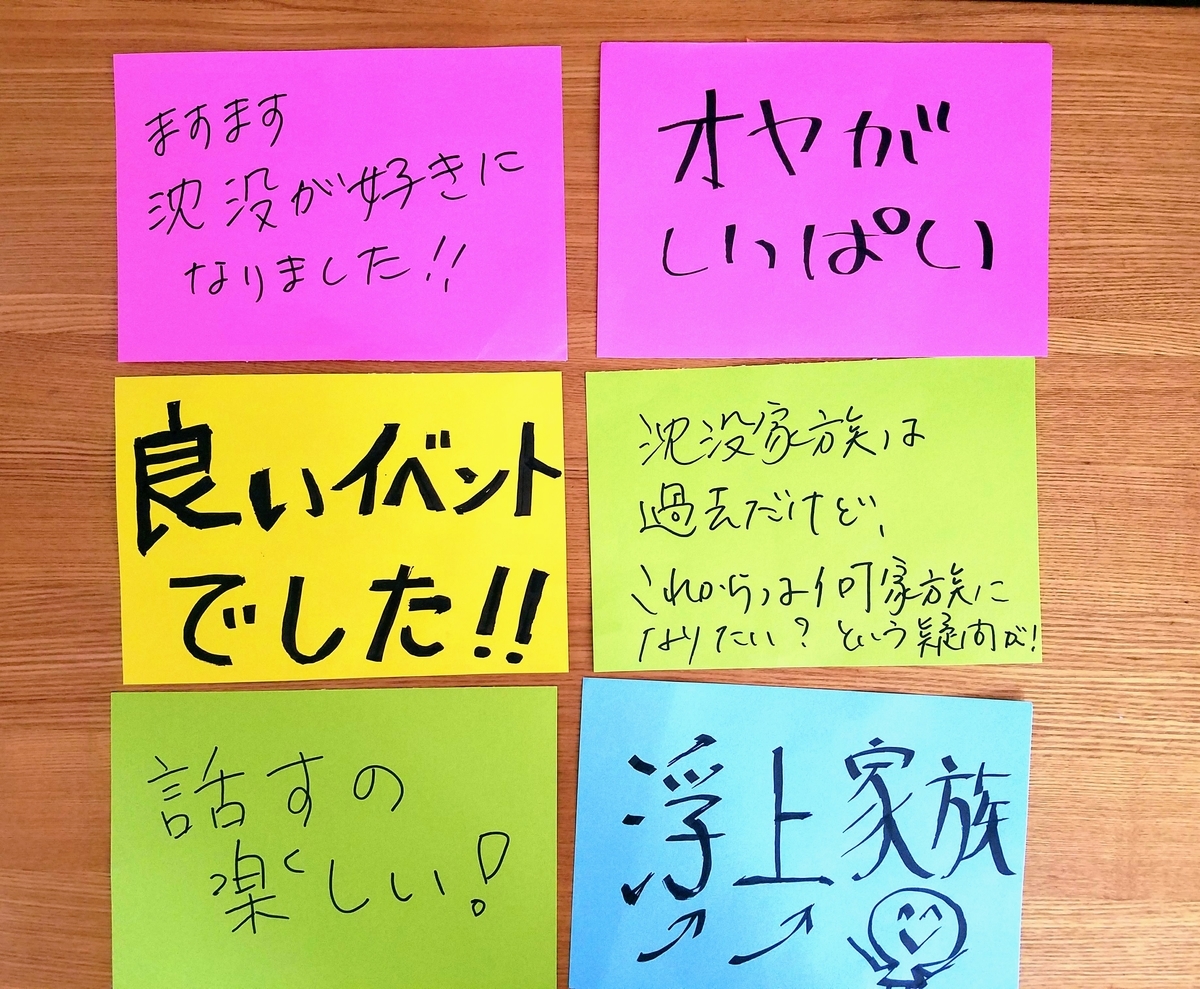 ますます
沈没が好きに
なりました!!
オヤが
いっぱい
良いイベント
でした!!
沈没家族は
過去だけど、
これからは何家族に
なりたい？という疑問が!
話すの
楽しい!
浮上家族